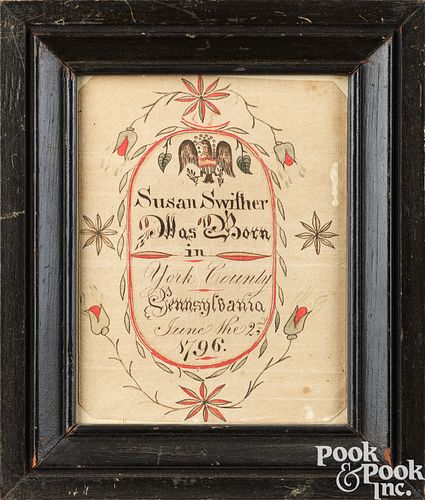 Susan Swisher
Was Born
in
York County
Pennsylvania
June the 2nd
1796.
POOK
& POOK
Inc.